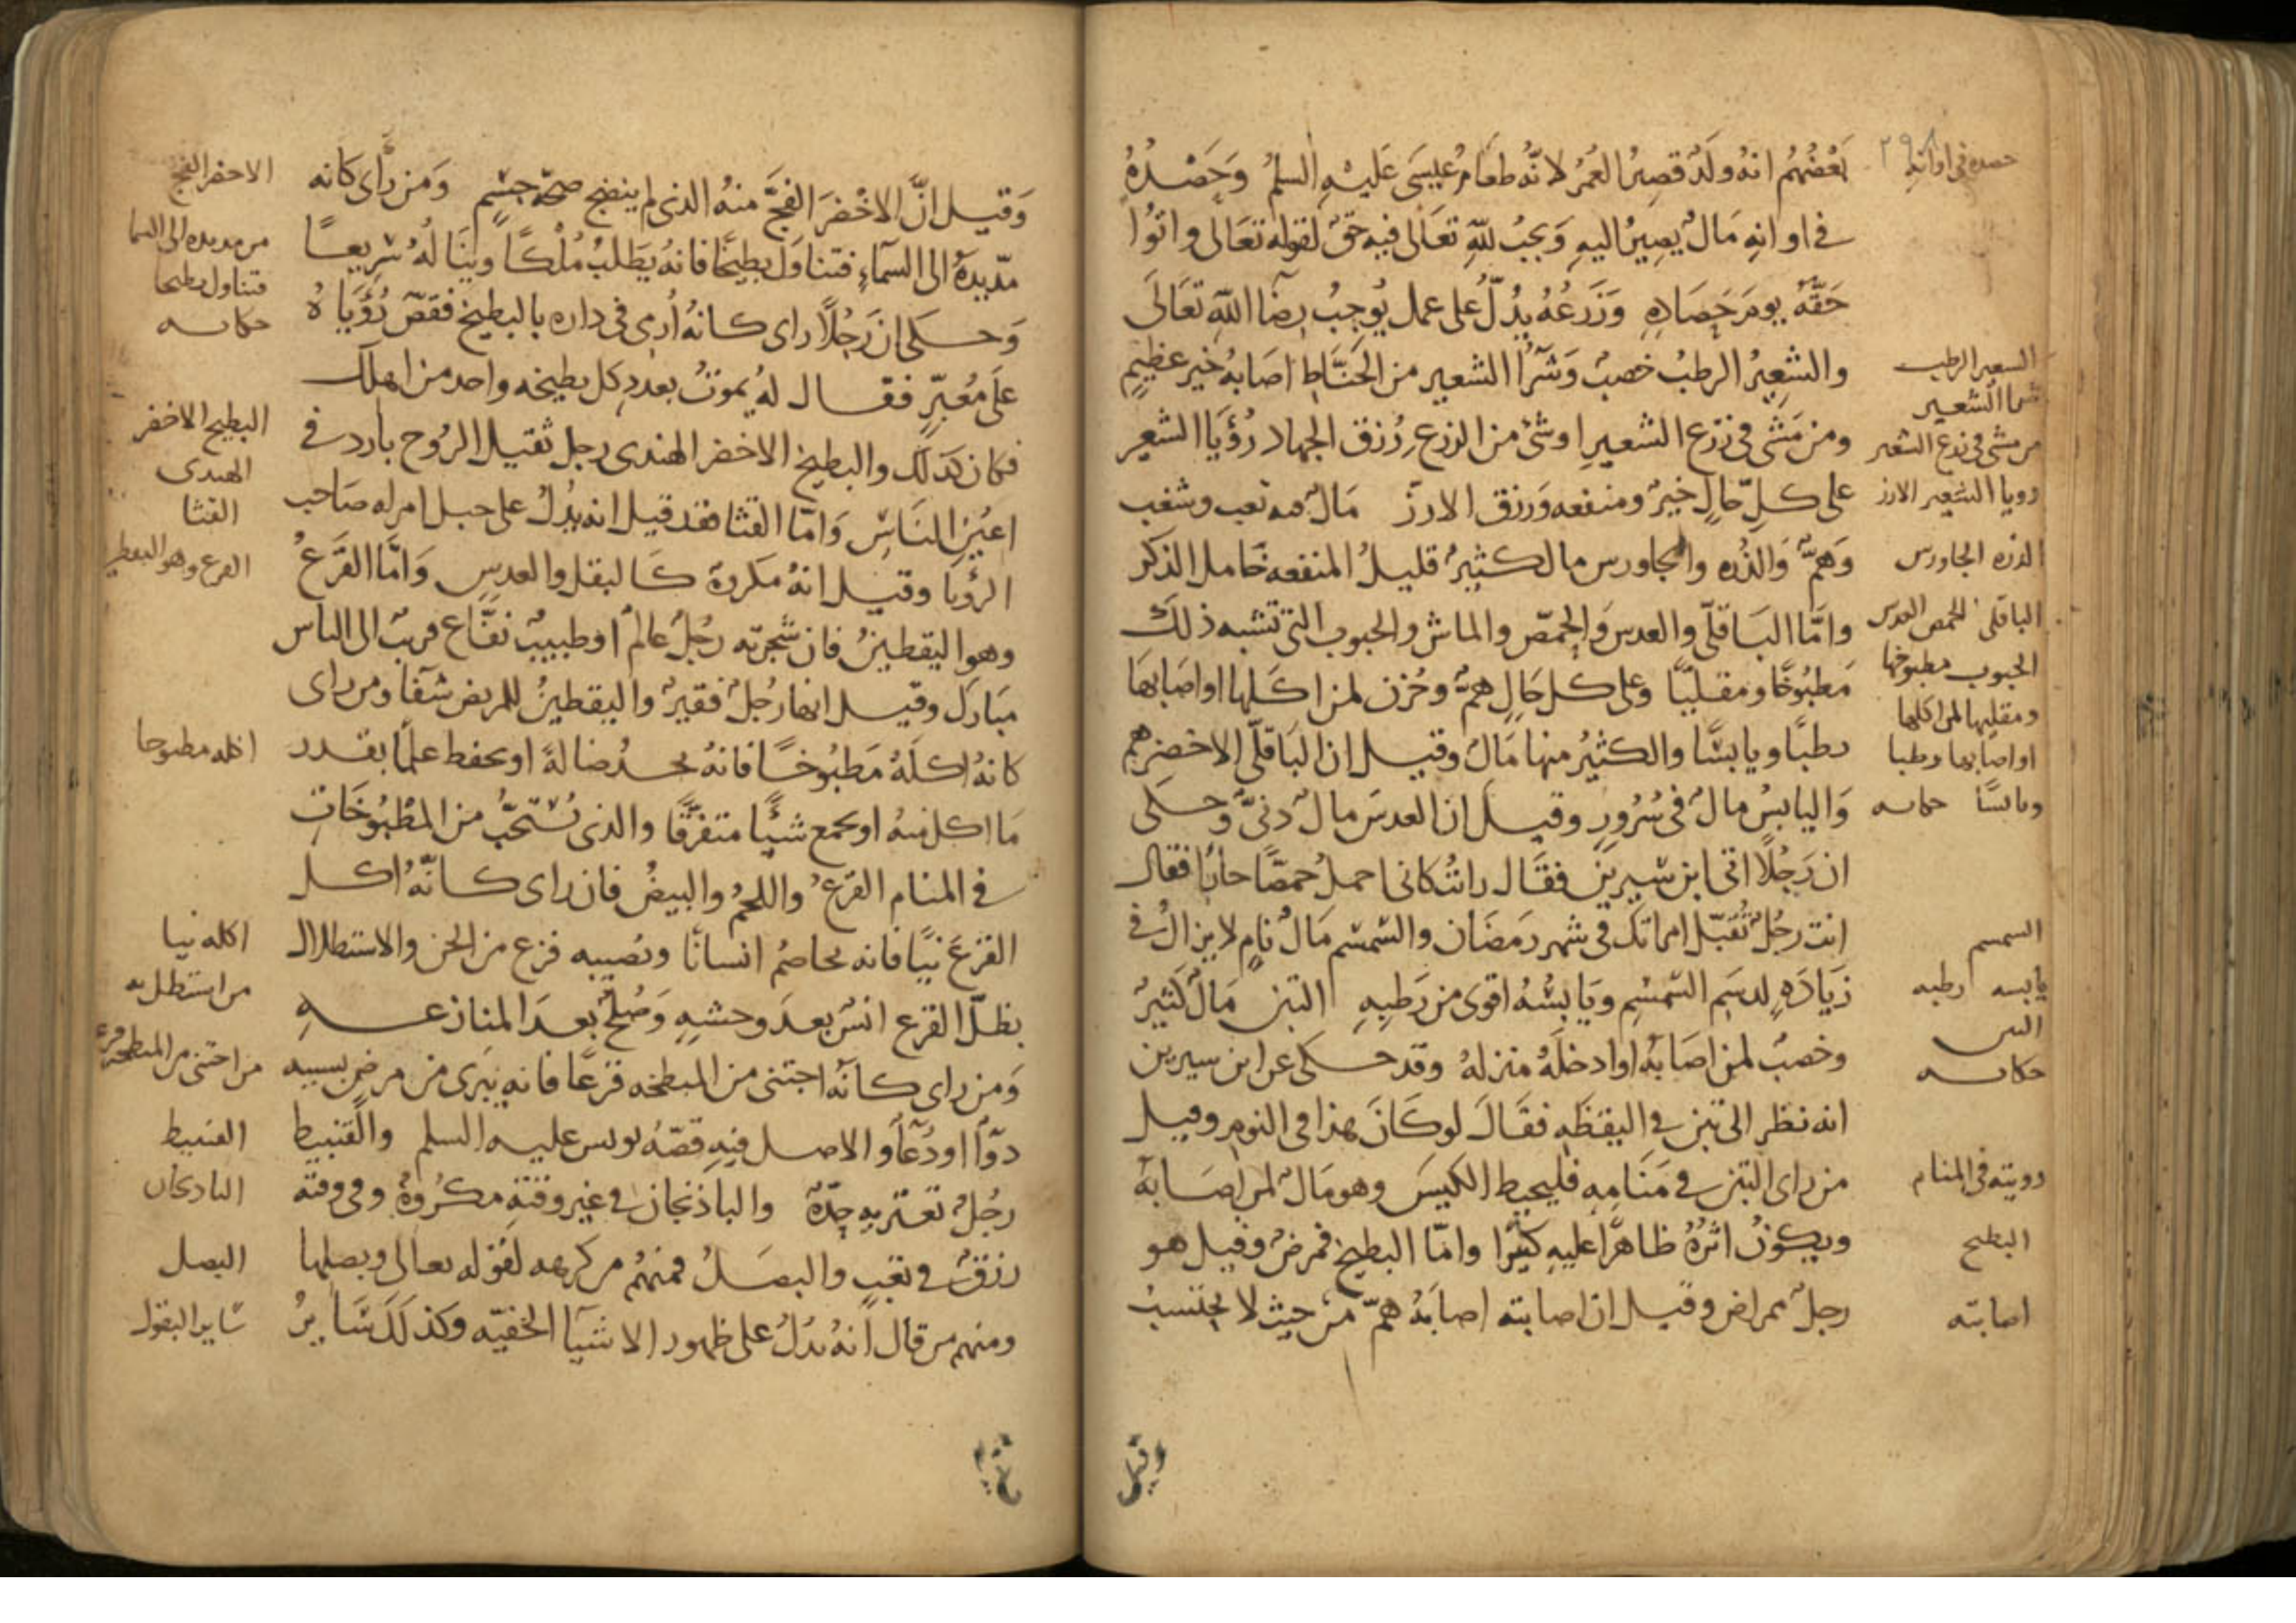 بَعْضُهُم انهُ ولَدٌ قصِيرُ العُمُر لانّهُ طعَامُ عِيسَى عَليْهِ السلمُ وَحَصْدُهُ
في اوانِهِ مَالٌ يصِيرُ اليهِ وَيجبُ للّهِ تعَالى فيهِ حَقٌ لقوله تعَالى واتُوا
حَقَّهُ يومَ حَصَادِهِ وَزَرعُهُ يدُلّ على عمل يُوجِبُ رِضَا اللّهِ تعَالَى
والشعِيرُ الرطبُ خصبٌ وَشَرَا الشعير من الحَنّاطِ اصَابهُ خير عظيم
ومن مَشَى في زرَع الشعيرِ او شئ من الزرع رُزِق الجهاد رُؤيَا الشعير
على كلِّ حَالٍ خيرٌ ومنفعه وَرزق الارز مَالٌ فيه تعب وشغب
وَهمٌّ وَالذُره والجاورس مال كثيرٌ قليلُ المنفعه خامل الذكر
وامَّا البَاقلّى والعدس وَالحمّص والماش والحبوب التي تشبه ذلك
مَطبُوخًا ومقليّا وعلى كل حَالٍ همٌّ وحُزن لمن اكَلها او اصَابهَا
رطبًا ويابسًا والكثيرُ منها مَالٌ وقيل ان البَاقلّى الاخضر هم
وَاليابسُ مالٌ في سُرُورٍ وقيل ان العدسَ مالٌ دنيٌّ وحكى
ان رَجُلًا اتى ابن سيرين فقَال رايتُ كانى احمل حمصًّا حارا فقال
انت رجُلٌ تُقبّل امراتكَ في شهر رمَضَان والسّمسم مَالٌ نامٍ لا يزالُ في
زيَادَهٍ لدسَمِ السّمسْمِ ويَابسُهُ اقوى من رَطبِهِ التبن مَالٌ كثيرٌ
وخصبٌ لمن اصَابهُ او ادخلَهُ منزلهُ وقد حكى عن ابن سيرين
انه نظر الى تبن في اليقظَهِ فقَالَ لو كَانَ هذا فى النوم وقيل
من راى التبن في مَنَامِهِ فليحيط الكيسَ وهو مَالٌ لمن اصَابهُ
ويكونُ اثرُهُ ظاهرًا عليهِ كثيرًا وامّا البطيخ فمرضٌ وقيل هو
رجلٌ ممراض وقيل ان اصابته اصَابهُ همّ من حيث لا يحتسبُ
وقيل
حصده فى اوانه
٢٩٨
الشعير الرطب
شرا الشعير
من مشى فى زرع الشعير
رويا الشعير الارز
الذره الجاورس
الباقلى الحمص العدس
الحبوب مطبوخها
ومقليها لمن اكلها
او اصابها رطبا
ويابسًا حكايه
السمسم
يابسه رطبه
التبن
حكايه
رويته فى المنام
البطيخ
اصابته
وَقيل انَّ الاخْضرَ الفجَّ منهُ الذى لم ينضج صحّة جسْمٍ وَمن رَأى كانه
مدّ يدهُ الى السمآءِ فتناوَل بطيخًا فانهُ يَطلبُ مُلْكًا وينَالهُ سَرِيعًا
وَحكى ان رَجُلًا راى كانهُ اُرمى فى داره بالبطيخ فقصّ رُؤيَاهُ
عَلى مُعَبّرٍ فقال لهُ يموتُ بعددِ كل بطيخه واحد من اهلك
فكان كذلك والبطيخ الاخضر الهندى رجل ثقيل الرُوح بارد في
اعيُنِ النَاسِ وَامّا القثا فقد قيل انه يدُلُ على حبل امراه صاحب
الرؤيا وقيل انهُ مكروهٌ كَالبقل والعدسِ وَامَّا القَرَعُ
وهو اليقطينُ فان شجرته رجُلٌ عالمٌ او طبيبٌ نفّاع قريبٌ الى الناس
مبَارك وقيل انها رُجلٌ فقيرٌ واليقطينُ للمريض شفَا ومن راى
كانهُ اكلَهُ مَطبُوخًا فانهُ يجدُ ضالةً او يحفظ علمًا بقدر
مَا اكل منهُ او يجمع شيًا متفرّقًا والذى يُستحبُّ من المطبُوخَاتِ
في المنام القرَعُ واللحمُ والبيضُ فان راى كانّهُ اكل
القرعَ نيًا فانه يخاصمُ انسانًا ويصيبه فزع من الجن والاستظلال
بظلّ القرع انسٌ بعدَ وحشهٍ وَصُلحٌ بعدَ المنازعهِ
وَمن راى كانه اجتنى من المبطخه قرعًا فانه يَبرى من مرضٍ بسببِ
دوآٍ او دُعآٍ والاصل فيهِ قصّهُ يونس عليه السلم والقنبيط
رجُلٌ تعتريه حِدّةٌ والباذنجان في غير وقتهِ مكرُوهٌ وفى وقته
رزقٌ في تعَبٍ والبصَلُ فمنهُم من كرهه لقوله تعالى وبصلها
ومنهم من قال انهُ يدُلُ على ظهور الاشيَا الخفيّه وكذلكَ سَايرُ
الاخضر الفج
من مد يده الى السما
فتناول بطيخا
حكايه
البطيخ الاخضر
الهندى
القثا
القرع وهو اليقطين
اكله مطبوخا
اكله نيا
من استظل به
من اجتنى من المبطخه قرعا
القنبيط
الباذنجان
البصل
ساير البقول